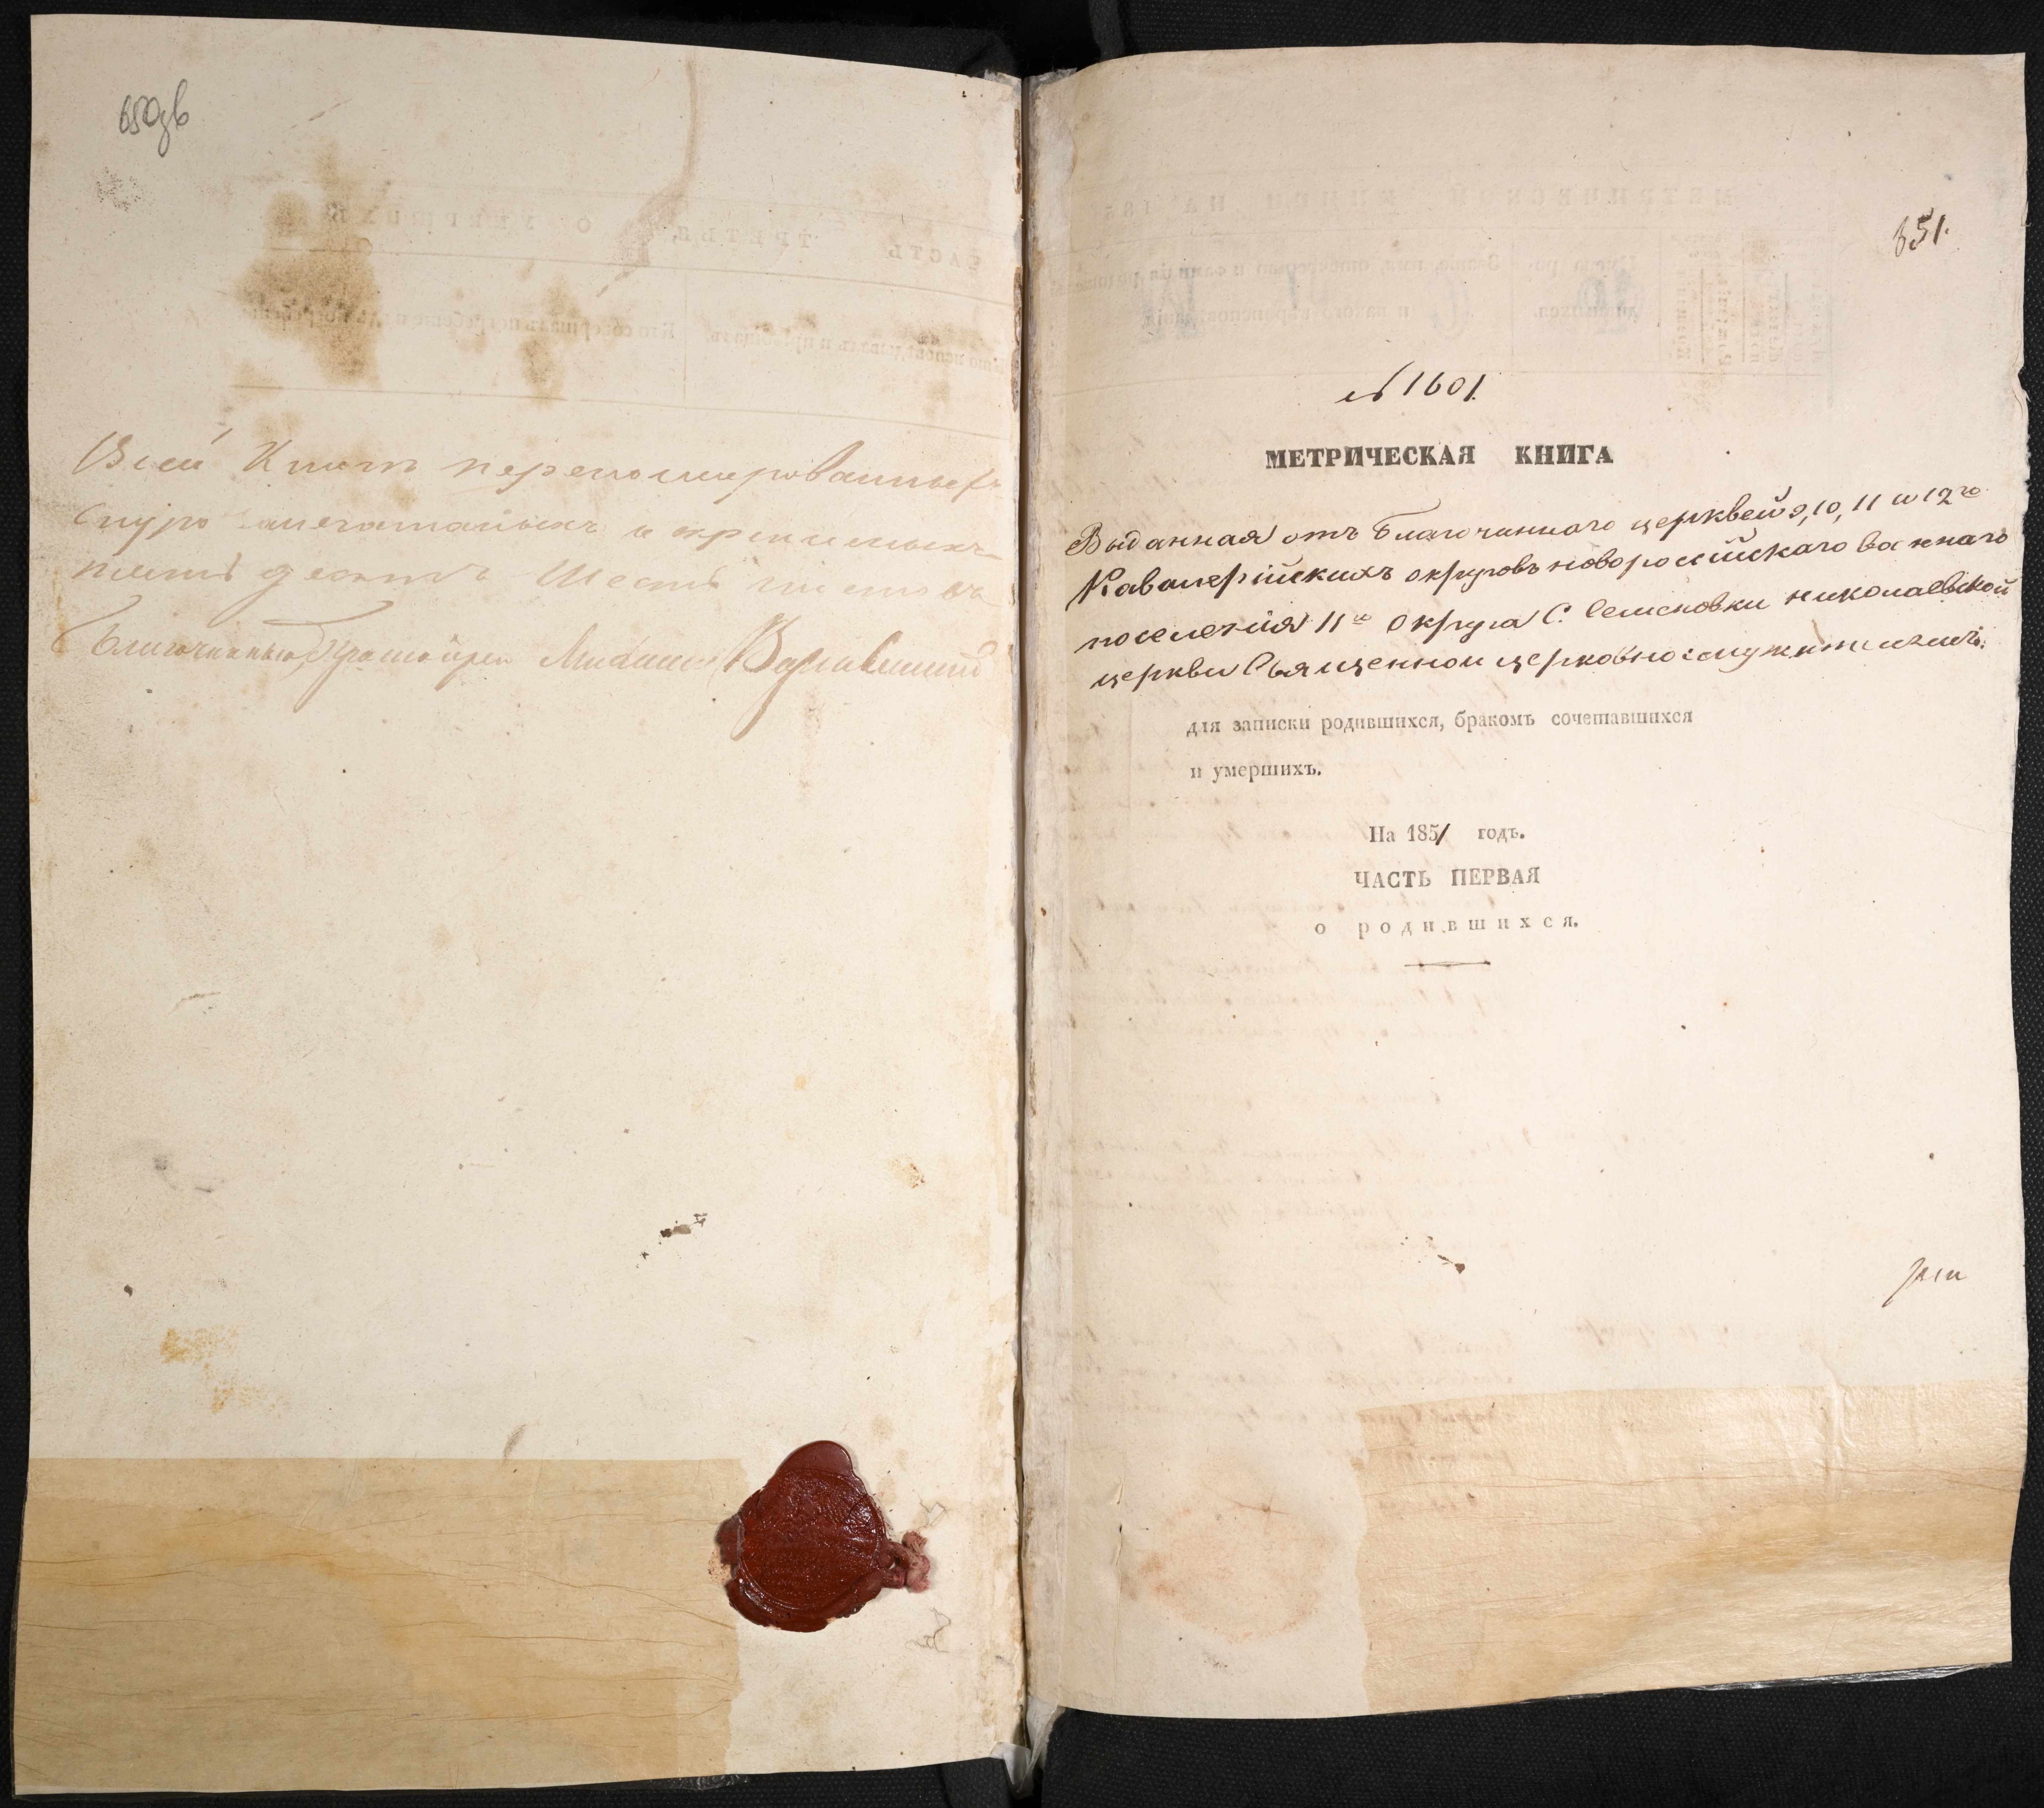 650зв
Всей Книгѣ перенумерованныхъ
Шнуро запечатаныхъ и
десятъ Шесть листовъ
Благочинный, Протоіерей
651.
№ 1601.
МЕТРИЧЕСКАЯ КНИГА
Выданная отъ Благочиннаго церквей 9, 10, 11 и 12го
Кавалерійскихъ округовъ новоросійскаго военнаго
поселенія 11го округа С. Семеновки николаевской
церкви Священно церковно:служителямъ.
для записки родившихся, бракомъ сочетавшихся
и умершихъ.
На 1851 годъ.
ЧАСТЬ ПЕРВАЯ
о родившихся.